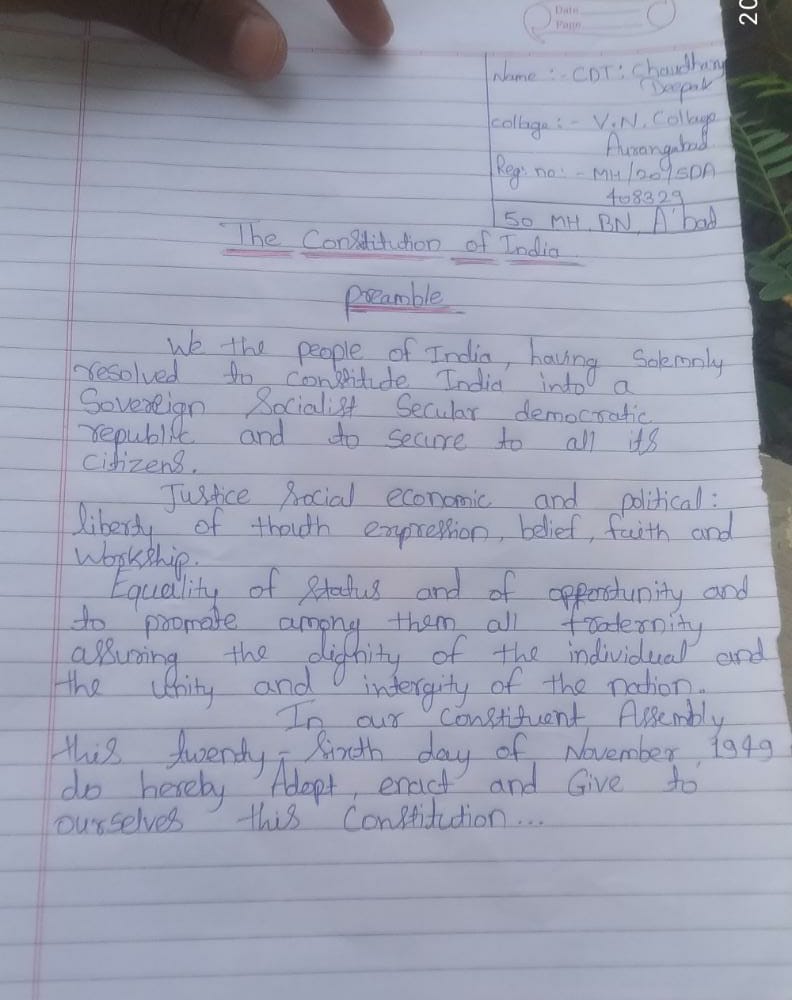 Date
Page
20
Name :- CDT: Chaudhary
Deepak
collage :- V.N. Collage
Aurangabad.
Reg. no :- MH/20/SDA
408329
50 MH, BN, A'bad
The Constitution of India
preamble
We the people of India, having Solemnly
resolved to constitute India into a
Sovereign Socialist Secular democratic
republic and to secure to all its
citizens.
Justice Social economic and political :
liberty of thouth expression, belief, faith and
Workship.
Equality of status and of opportunity and
to promote among them all fraternity
assuring the dignity of the individual and
the Unity and intergity of the nation.
In our constituent Assembly
this twenty-sixth day of November, 1949
do hereby Adopt, enact and Give to
ourselves this Constitution...